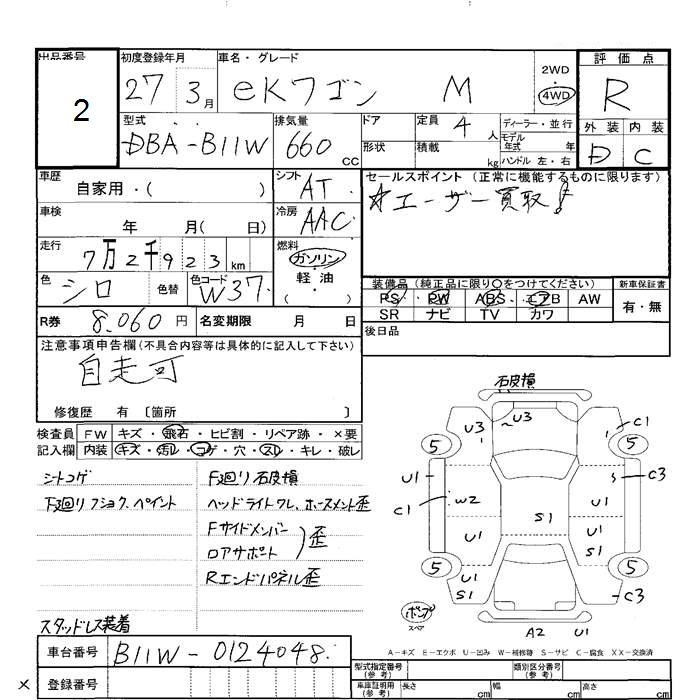 出品番号 2
初度登録年月 27 . 3月
車名・グレード eKワゴン M
2WD
4WD
評価点 R
型式 DBA-B11W
排気量 660 CC
ドア
形状
定員 4 人
積載 kg
ディーラー・並行
モデル年式 年
ハンドル 左・右
外装 内装
D C
車歴 自家用・( )
シフト AT
車検 年 月( 日)
冷房 AAC
走行 7万2千923 km
燃料 ガソリン・軽油・( )
色 シロ 色替
色コード W37
R券 8.060 円 名変期限 月 日
セールスポイント (正常に機能するものに限ります)
☆ユーザー買取!
装備品(純正品に限り○をつけてください)
PS PW ABS エアB AW
SR ナビ TV カワ
新車保証書
有・無
後日品
注意事項申告欄(不具合内容等は具体的に記入して下さい)
自走可
修復歴 有 〔箇所 〕
検査員 FW キズ・飛石・ヒビ割・リペア跡・×要
記入欄 内装 キズ・汚レ・コゲ・穴・スレ・キレ・破レ
シートコゲ
下廻リフショク、ペイント
スタッドレス装着
F廻リ石皮損
ヘッドライトワレ、ホースメント歪
Fサイドメンバー
ロアサポート 歪
Rエンドパネル歪
石皮損
U3 U3 C1
5 5
U1 S C3
C1 W2 U1
S1
U1 U1
S1
5 5
U1
S1 C3
ボンプ
スペア
A2 U1
A-キズ E-エクボ U-凹み W-補修跡 S-サビ C-腐食 XX-交換済
車台番号 B11W-0124048
× 登録番号
型式指定番号(参考) 類別区分番号(参考)
車庫証明用(参考) 長さ cm 幅 cm 高さ cm